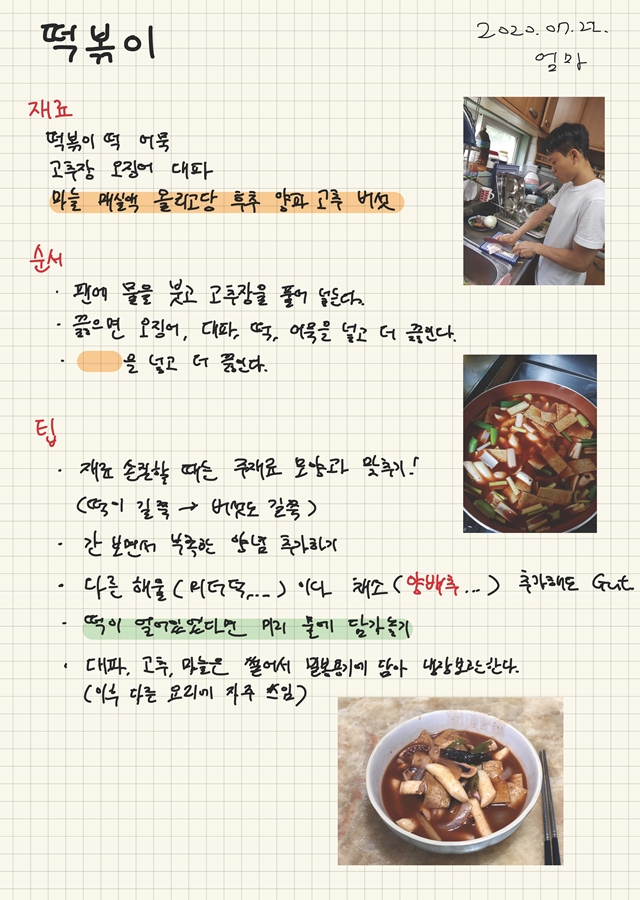 떡볶이
2020.07.22.
재료
떡볶이 떡 어묵
고추장 오징어 대파
마늘 매실액 올리고당 후추 양파 고추 버섯
순서
· 팬에 물을 붓고 고추장을 풀어 넣는다.
· 끓으면 오징어, 대파, 떡, 어묵을 넣고 더 끓인다.
· 을 넣고 더 끓인다.
팁
· 재료 손질할 때는 주재료 모양과 맞추기!
(떡이 길쭉 → 버섯도 길쭉)
· 간 보면서 부족한 양념 추가하기
· 다른 해물( ...)이나 채소(양배추...) 추가해도 Gut
· 떡이 얼어있었다면 미리 물에 담가놓기
· 대파, 고추, 마늘은 썰어서 밀봉용기에 담아 냉장보관한다.
(이후 다른 요리에 자주 쓰임)